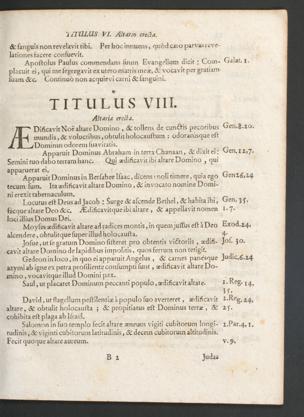 TITULUS VI. Altaria erecta.
& sanguis non revelavit tibi. Per hoc innuens, quòd caro parvas revelationes facere consuevit.
Apostolus Paulus commendans suum Evangelium dicit; Complacuit ei, qui me segregavit ex utero matris meæ, & vocavit per gratiam suam &c. Continuò non acquievi carni & sanguini.
Galat. 1.
TITULUS VIII.
Altaria erecta.
ÆDificavit Noë altare Domino, & tollens de cunctis pecoribus mundis, & volucribus, obtulit holocaustum: odoratusque est Dominus odorem suavitatis.
Gen. 8. 20.
Apparuit Dominus Abraham in terra Chanaan, & dixit ei: Semini tuo dabo terram hanc. Qui ædificavit ibi altare Domino, qui apparuerat ei.
Gen. 12. 7.
Apparuit Dominus in Bersabee Isaac, dicens: noli timere, quia ego tecum sum. Ita ædificavit altare Domino, & invocato nomine Domini erexit tabernaculum.
Gen 26. 24
Locutus est Deus ad Jacob: Surge & ascende Bethel, & habita ibi, facque altare Deo &c. Ædificavitque ibi altare, & appellavit nomen loci illius Domus Dei.
Gen. 35. 1. 7.
Moyses ædificavit altare ad radices montis, in quem jussus est à Deo ascendere, obtulitque super illud holocausta.
Exod. 24.
Josue, ut is gratum Domino sisteret pro obtentis victoriis, ædificavit altare Domino de lapidibus impolitis, quos ferrum non tetigit.
Jos. 30.
Gedeon in loco, in quo ei apparuit Angelus, & carnes panesque azymi ab igne ex petra prosiliente consumpti sunt, ædificavit altare Domino, vocavitque illud Domini pax.
Judic. 6. 24
Saul, ut placaret Dominum peccanti populo, ædificavit altare.
1. Reg. 14. 35.
David, ut flagellum pestilentiæ à populo suo averteret, ædificavit altare, & obtulit holocausta; & propitiatus est Dominus terræ, & cohibita est plaga ab Israël.
1. Reg. 24. 25.
Salomon in suo templo fecit altare æneum viginti cubitorum longitudinis, & viginti cubitorum latitudinis, & decem cubitorum altitudinis. Fecit quoque altare aureum.
2. Par. 4. 1.
v. 9.
B 2
Judas